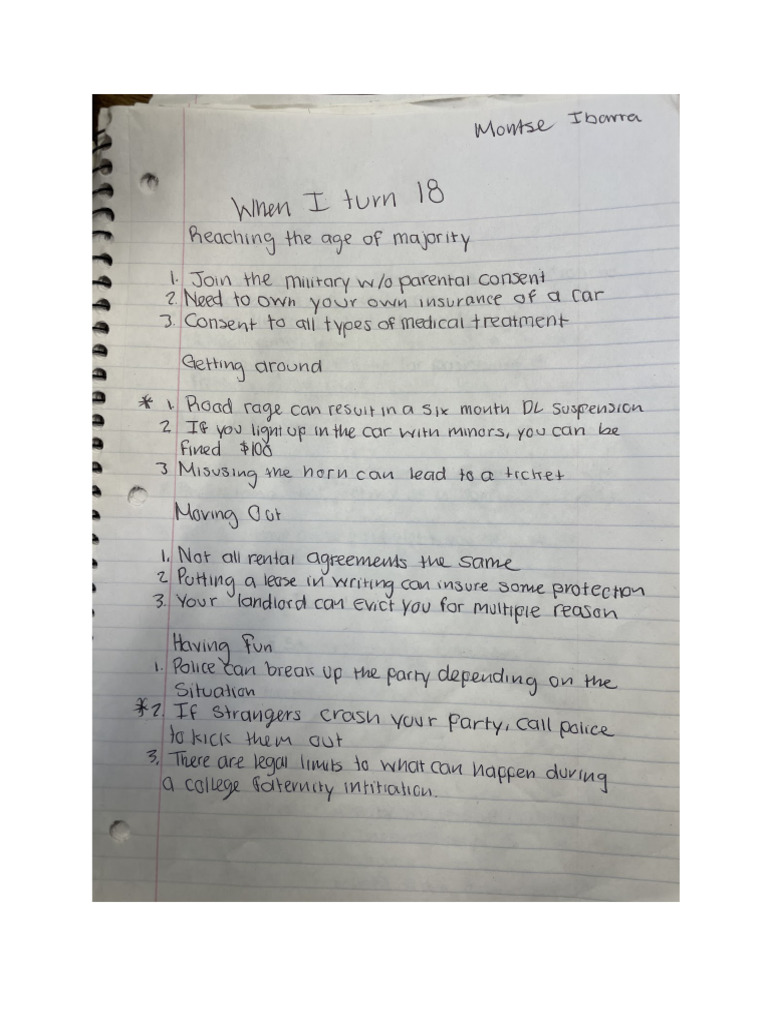 Montse Ibarra
When I turn 18
Reaching the age of majority
1. Join the military w/o parental consent
2. Need to own your own insurance of a car
3. Consent to all types of medical treatment
Getting around
* 1. Road rage can result in a six month DL suspension
2 If you light up in the car with minors, you can be
fined $100
3 Misusing the horn can lead to a ticket
Moving Out
1. Not all rental agreements the same
2. Putting a lease in writing can insure some protection
3. Your landlord can evict you for multiple reason
Having Fun
1. Police can break up the party depending on the
Situation
*2. If strangers crash your party, call police
to kick them out
3. There are legal limits to what can happen during
a college faternity intitiation.